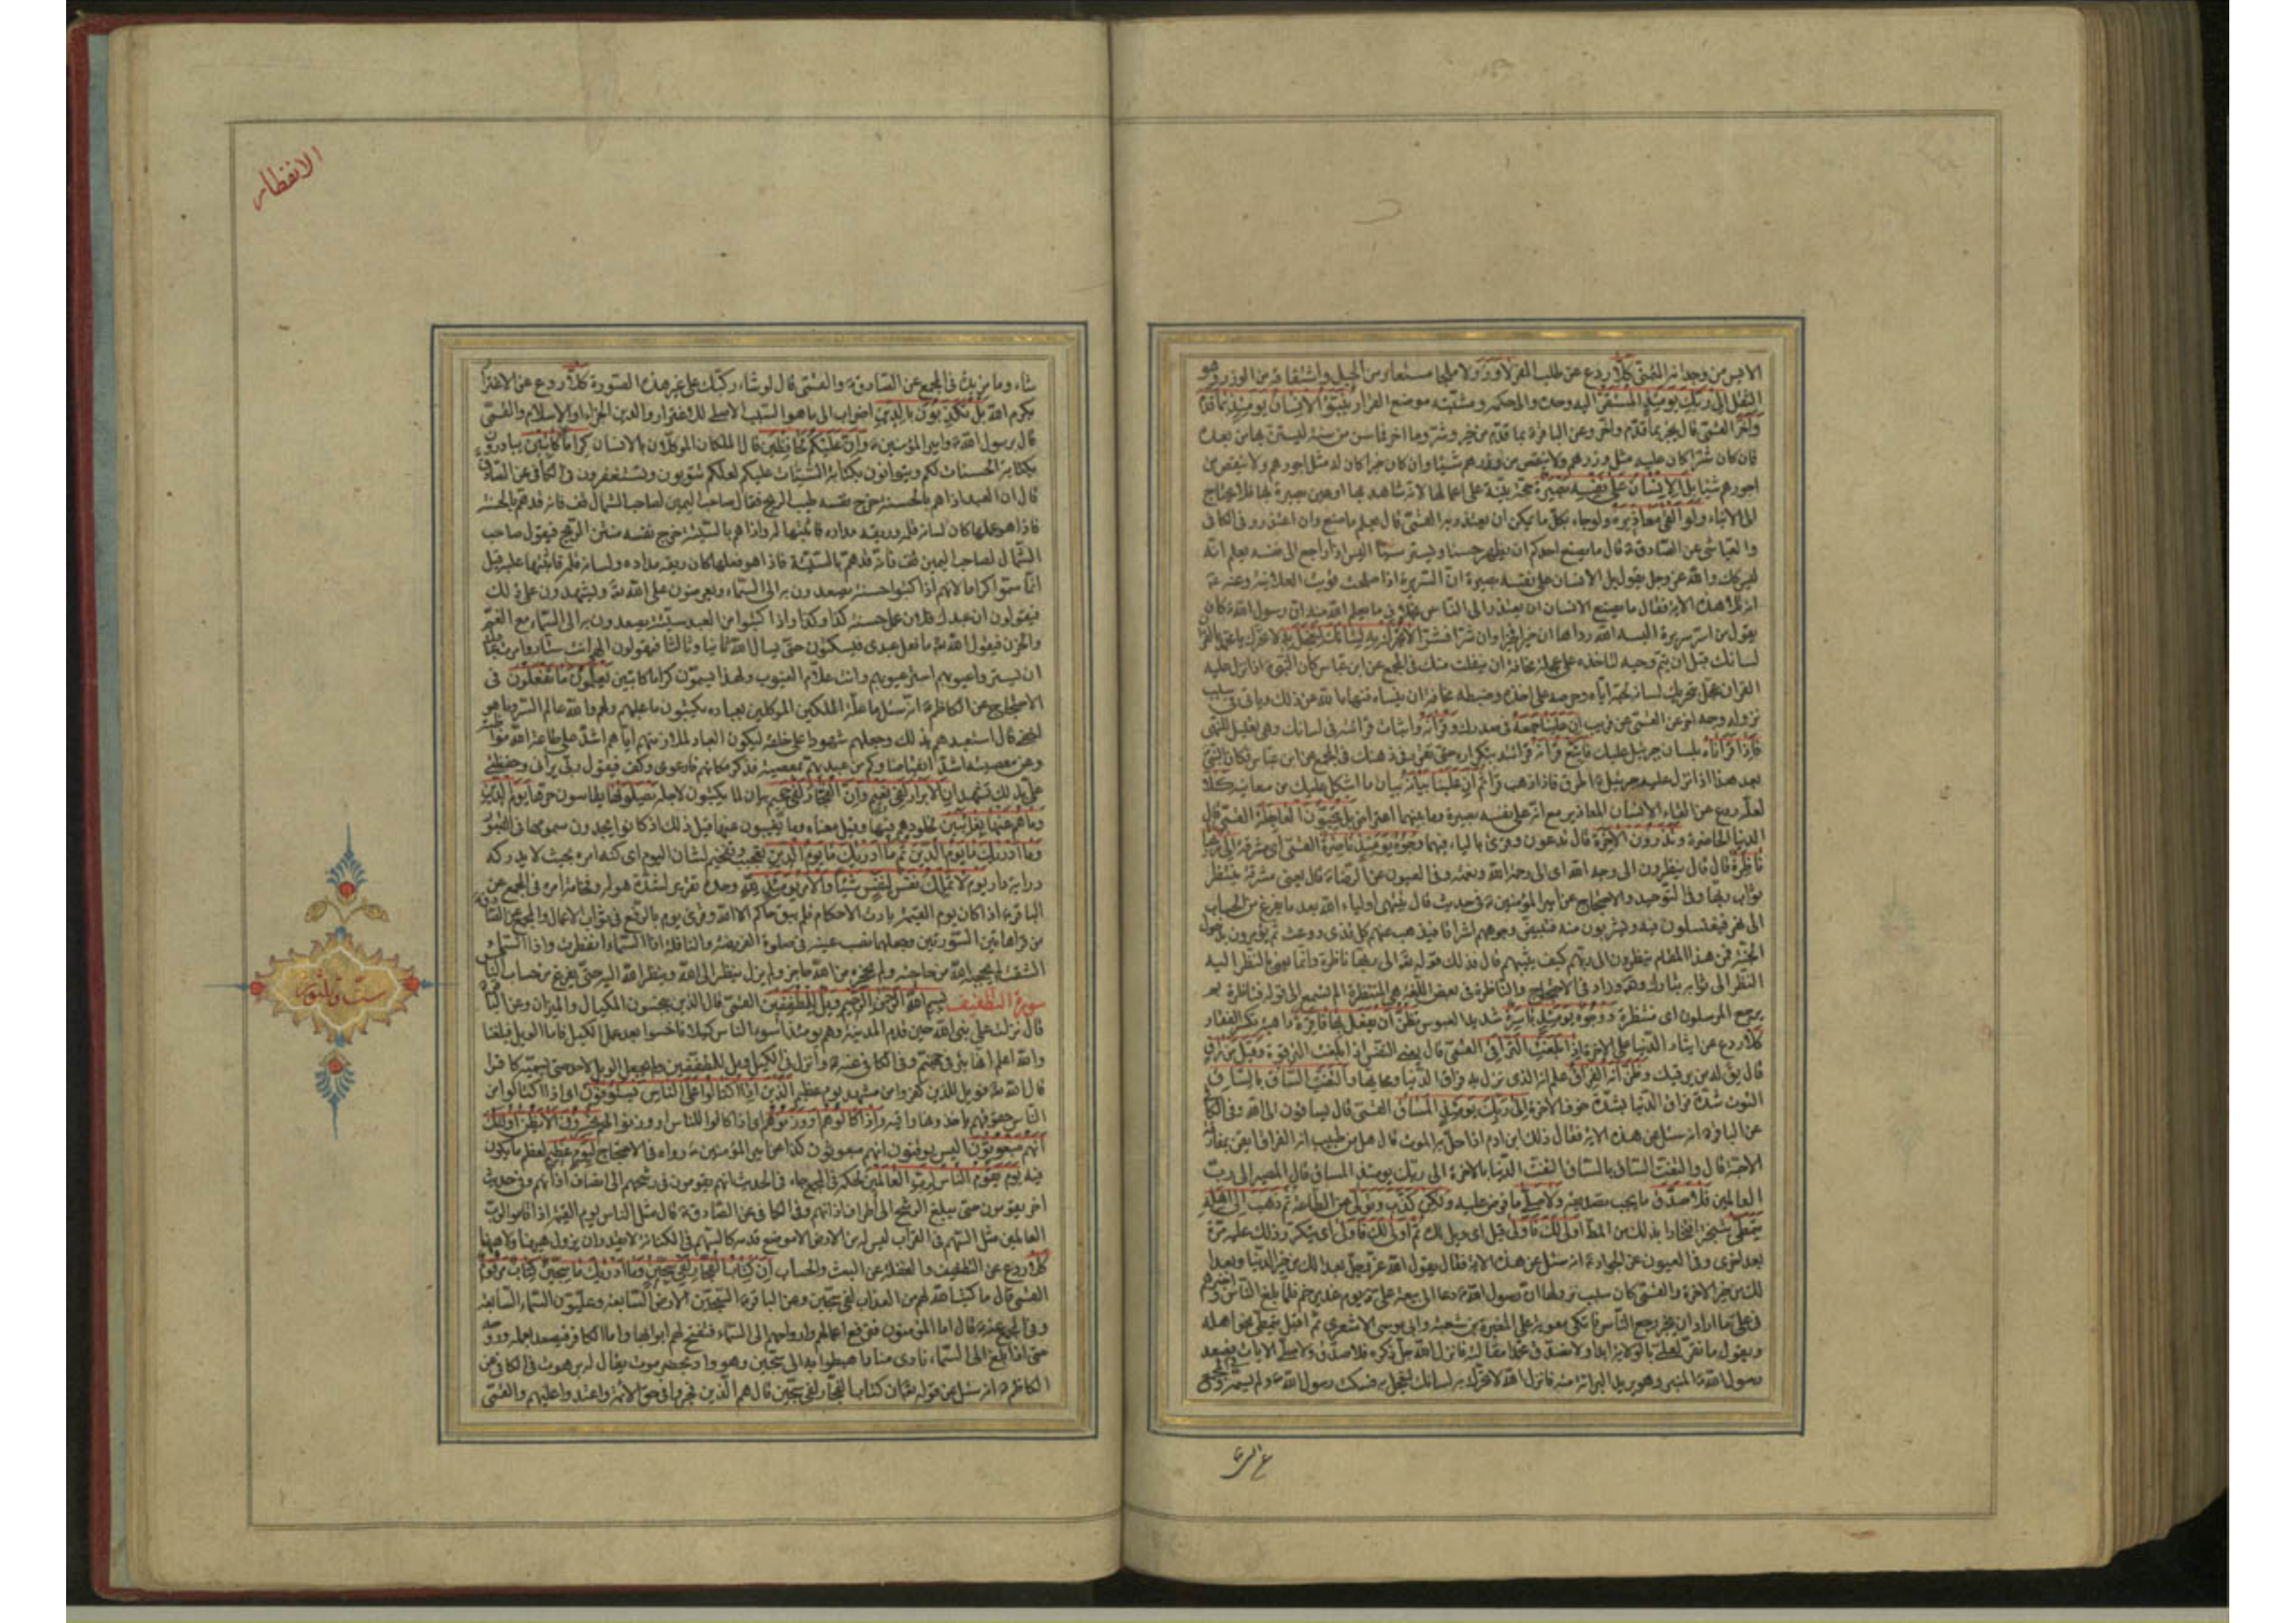 الايس من وجدانه القمي كلا ردع عن طلب المفر لا وزر لا ملجأ مستعار من الجبل واشتقاقه من الوزر وهو
الثقل الى ربك يومئذ المستقر اليه وحده والى حكمه ومشيته موضع القرار ينبؤ الانسان يومئذ بما قدم
واخر القمي قال يخبر بما قدم واخر وعن الباقر بما قدم من خير وشر وما اخر فما سن من سنة ليستن بها من بعده
فان كان شرا كان عليه مثل وزرهم ولا ينقص من وزرهم شيئا وان كان خيرا كان له مثل اجورهم ولا ينقص من
اجورهم شيئا بل الانسان على نفسه بصيرة حجة بينة على اعمالها لانه شاهد بها او عين بصيرة بها فلا يحتاج
الى الانباء ولو القى معاذيره ولو جاء بكل ما يمكن ان يعتذر به القمي قال يعلم ما صنع وان اعتذر وفي الكافي
والعياشي عن الصادق قال ما يصنع احدكم ان يظهر حسنا ويستر سيئا اليس اذا راجع الى نفسه يعلم انه
ليس كك والله عز وجل يقول بل الانسان على نفسه بصيرة ان السريرة اذا صلحت قويت العلانية وعنه
انه تلا هذه الاية فقال ما يصنع الانسان ان يعتذر الى الناس بخلاف ما يعلم الله منه ان رسول الله كان
يقول من اسر سريرة البسه الله رداها ان خيرا فخير وان شرا فشر لا تحرك به لسانك لتعجل به لا تحرك يا محمد بالقران
لسانك قبل ان يتم وحيه لتاخذه على عجلة مخافة ان ينفلت منك في المجمع عن ابن عباس كان النبي اذا نزل عليه
القران عجل بتحريك لسانه لحبه اياه وحرصه على اخذه وضبطه مخافة ان ينساه فنهاه الله عن ذلك وياتي في سبب
نزوله وجه اخر عن القمي عن قريب ان علينا جمعه في صدرك وقرانه واثبات قرائته في لسانك وهو تعليل للنهي
فاذا قراناه بلسان جبرئيل عليك فاتبع قرانه قرائته بتكراره حتى تقرر في ذهنك في المجمع عن ابن عباس فكان النبي
بعد هذا اذا نزل عليه جبرئيل اطرق فاذا ذهب قرا ثم ان علينا بيانه بيان ما اشكل عليك من معانيه كلا
لعله ردع عن القاء الانسان المعاذير مع انه على نفسه بصيرة وما بينهما اعتراض بل تحبون العاجلة القمي قال
الدنيا الحاضرة وتذرون الاخرة قال تدعون وقرئ بالياء فيهما وجوه يومئذ ناضرة القمي اي مشرقة الى ربها
ناظرة قال قال ينظرون الى وجه الله اى الى رحمة الله ونعمته وفي العيون عن الرضا قال يعني مشرقة ينتظر
ثواب ربها وفي التوحيد والاحتجاج عن امير المؤمنين في حديث قال ينتهى اولياء الله بعد ما يفرغ من الحساب
الى نهر فيغتسلون فيه ويشربون منه فتبيض وجوههم اشراقا فيذهب عنهم كل قذى ووعث ثم يؤمرون بدخول
الجنة فمن هذا المقام ينظرون الى ربهم كيف يثيبهم قال فذلك قوله تع الى ربها ناظرة وانما يعني بالنظر اليه
النظر الى ثوابه تبارك وتع وزاد في الاحتجاج والناظرة في بعض اللغة هي المنتظرة الم تسمع الى قوله فناظرة بم
يرجع المرسلون اى منتظرة ووجوه يومئذ باسرة شديدا العبوس تظن ان يفعل بها فاقرة داهية تكسر الفقار
كلا ردع عن ايثار الدنيا على الاخرة اذا بلغت التراقي القمي قال يعني النفس اذا بلغت الترقوة وقيل من راق
قال يق له من يرقيك وظن انه الفراق علم انه الذى نزل به فراق الدنيا ومحابها والتفت الساق بالساق
التوت شدة فراق الدنيا بشدة خوف الاخرة الى ربك يومئذ المساق القمي قال يساقون الى الله وفي الكافي
عن الباقر انه سئل عن هذه الاية فقال ذلك ابن ادم اذا حل به الموت قال هل من طبيب انه الفراق ايقن بمفارقة
الاحبة قال والتفت الساق بالساق التفت الدنيا بالاخرة الى ربك يومئذ المساق قال المصير الى رب
العالمين فلا صدق ما يجب تصديقه ولا صلى ما فرض عليه ولكن كذب وتولى عن الطاعة ثم ذهب الى اهله
يتمطى يتبختر افتخارا بذلك من المط اولى لك فاولى قيل اى ويل لك ثم اولى لك فاولى اى يتكرر ذلك عليه مرة
بعد اخرى وفي العيون عن الجواد انه سئل عن هذه الاية فقال يقول الله عز وجل بعدا لك من خير الدنيا وبعدا
لك من خير الاخرة والقمي كان سبب نزولها ان رسول الله دعا الى بيعة علي يوم غدير خم فلما بلغ الناس واخبرهم
في علي ما اراد ان يخبر رجع الناس فاتكى معوية على المغيرة بن شعبة وابي موسى الاشعري ثم اقبل يتمطى نحو اهله
ويقول ما نقر لعلي بالولاية ابدا ولا نصدق محمدا مقالته فانزل الله جل ذكره فلا صدق ولا صلى الايات فصعد
رسول الله المنبر وهو يريد البراءة منه فانزل الله لا تحرك به لسانك لتعجل به فسكت رسول الله ولم يسمه
الانفطار
شاء وما مزيدة في المجمع عن الصادق والقمي قال لو شاء ركبك على غير هذه الصورة كلا ردع عن الاغترار
بكرم الله بل تكذبون بالدين اضراب الى ما هو السبب الاصلي للاغترار والدين الجزاء او الاسلام والقمي
قال برسول الله وامير المؤمنين وان عليكم لحافظين قال الملكان الموكلان بالانسان كراما كاتبين يبادرون
بكتابة الحسنات لكم ويتوانون بكتابة السيئات عليكم لعلكم تتوبون وتستغفرون في الكافي عن الصادق
قال ان العبد اذا هم بالحسنة خرج نفسه طيب الريح فقال صاحب اليمين لصاحب الشمال قف فانه قد هم بالحسنة
فاذا هو عملها كان لسانه قلمه وريقه مداده فاثبتها له واذا هم بالسيئة خرج نفسه منتن الريح فيقول صاحب
الشمال لصاحب اليمين قف فانه قد هم بالسيئة فاذا هو فعلها كان ريقه مداده ولسانه قلمه فاثبتها عليه قيل
انما سموا كراما لانهم اذا كتبوا حسنة يصعدون به الى السماء ويعرضون على الله تع ويشهدون على ذلك
فيقولون ان عبدك فلان عمل حسنة كذا وكذا واذا كتبوا من العبد سيئة يصعدون به الى السماء مع الغم
والحزن فيقول الله تع ما فعل عبدى فيسكتون حتى يسال الله ثانيا وثالثا فيقولون الهى انت ستار وامرت عبادك
ان يستروا عيوبهم استر عيوبهم وانت علام الغيوب ولهذا يسمون كراما كاتبين يعلمون ما تفعلون في
الاحتجاج عن الكاظم انه سئل ما علة الملكين الموكلين بعباده يكتبون ما عليهم ولهم والله عالم السر وما هو
اخفى قال استعبدهم بذلك وجعلهم شهودا على خلقه ليكون العباد لملازمتهم اياهم اشد على طاعة الله مواظبة
وعن معصيته اشد انقباضا وكم من عبد يهم بمعصية فذكر مكانهم فارعوى وكف فيقول ربي يراني وحفظتي
علي بذلك تشهد ان الابرار لفي نعيم وان الفجار لفي جحيم بيان لما يكتبون لاجله يصلونها يقاسون حرها يوم الدين
وما هم عنها بغائبين لخلودهم فيها وقيل معناه وما يغيبون عنها قبل ذلك اذ كانوا يجدون سمومها في القبور
وما ادريك ما يوم الدين ثم ما ادريك ما يوم الدين تعجيب وتفخيم لشان اليوم اى كنه امره بحيث لا يدركه
دراية دار يوم لا تملك نفس لنفس شيئا والامر يومئذ لله وحده تقرير لشدة هوله وفخامة امره في المجمع عن
الباقر اذا كان يوم القيمة بادت الاحكام فلم يبق حاكم الا الله وقرئ يوم بالرفع في ثواب الاعمال والمجمع عن الصادق
من قرا هاتين السورتين وجعلهما نصب عينه في صلوة الفريضة والنافلة اذا السماء انفطرت واذا السماء
انشقت لم يحجبه الله من حاجته ولم يحجزه من الله حاجز ولم يزل ينظر الى الله وينظر الله اليه حتى يفرغ من حساب الناس
سورة التطفيف بسم الله الرحمن الرحيم ويل للمطففين القمي قال الذين يبخسون المكيال والميزان وعن الباقر
قال نزلت على نبي الله حين قدم المدينة وهم يومئذ اسوء الناس كيلا فاحسنوا بعد عمل الكيل فاما الويل فبلغنا
والله اعلم انها بئر في جهنم وفي الكافي عنه وانزل في الكيل ويل للمطففين ولم يجعل الويل لاحد حتى يسميه كافرا
قال الله تع فويل للذين كفروا من مشهد يوم عظيم الذين اذا اكتالوا على الناس يستوفون اى اذا اكتالوا من
الناس حقوقهم ياخذونها وافية واذا كالوهم او وزنوهم اى اذا كالوا للناس او وزنوا لهم يخسرون الا يظن اولئك
انهم مبعوثون اليس يوقنون انهم مبعوثون كذا عن امير المؤمنين رواه في الاحتجاج ليوم عظيم لعظم ما يكون
فيه يوم يقوم الناس لرب العالمين لحكمه في المجمع جاء في الحديث انهم يقومون في رشحهم الى انصاف اذانهم وفي حديث
اخر يقومون حتى يبلغ الرشح الى اطراف اذانهم وفي الكافي عن الصادق قال مثل الناس يوم القيمة اذا قاموا لرب
العالمين مثل السهم في القراب ليس له من الارض الا موضع قدمه كالسهم في الكنانة لا يقدر ان يزول هيهنا ولا هيهنا
كلا ردع عن التطفيف والغفلة عن البعث والحساب ان كتاب الفجار لفي سجين وما ادريك ما سجين كتاب مرقوم
القمي قال ما كتب الله لهم من العذاب لفي سجين وعن الباقر السجين الارض السابعة وعليون السماء السابعة
وفي المجمع عنه قال اما المؤمنون فترفع اعمالهم وارواحهم الى السماء فتفتح لهم ابوابها واما الكافر فيصعد بعمله وروحه
حتى اذا بلغ الى السماء نادى مناد اهبطوا به الى سجين وهو واد بحضرموت يقال له برهوت في الكافي عن
الكاظم انه سئل عن قوله تع ان كتاب الفجار لفي سجين قال هم الذين فجروا في حق الائمة واعتدوا عليهم والقمي